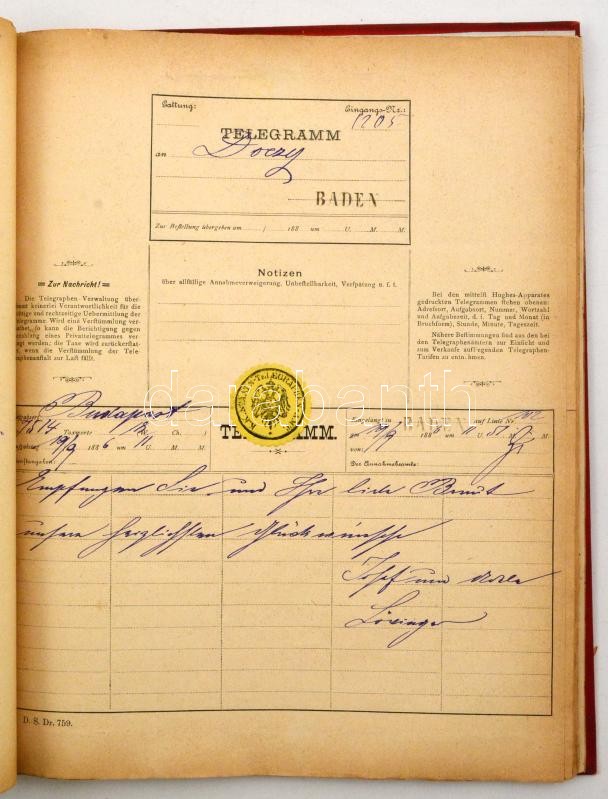 Gattung: Eingangs-Nr.:
1205
TELEGRAMM
an Doczy
BADEN
Zur Bestellung übergeben am / 188 um U. M. M.
Zur Nachricht!
Die Telegraphen-Verwaltung über-
keinerlei Verantwortlichkeit für die
und rechtzeitige Uebermittlung der
Wird eine Verstümmlung
so kann die Berichtigung gegen
eines Privattelegrammes
werden; die Taxe wird
wenn die Verstümmlung der Tele-
zur Last fällt.
Notizen
über allfällige Annahmeverweigerung, Unbestellbarkeit, Verspätung u. s. f.
Bei den mittelst Hughes-Apparates
gedruckten Telegrammen stehen obenan:
Adressort, Aufgabsort, Nummer, Wortzahl
und Aufgabszeit, d. i. Tag und Monat (in
Bruchform), Stunde, Minute, Tageszeit.
Nähere Bestimmungen sind aus den bei
den Telegraphenämtern zur Einsicht und
zum Verkaufe aufliegenden Telegraphen-
Tarifen zu entnehmen.
darabanth
Budapest
Taxworte Ch.
19/9 1886 um 11 U. M.
TELEGRAMM.
Eingelangt in BADEN auf Linie Nr.
188 um 11 U. M.
von:
Der Annahmebeamte:
Empfangen Sie und Ihre liebe Braut
unsere herzlichsten Glückwünsche
Josef und
Lövinger
D. S. Dr. 759.